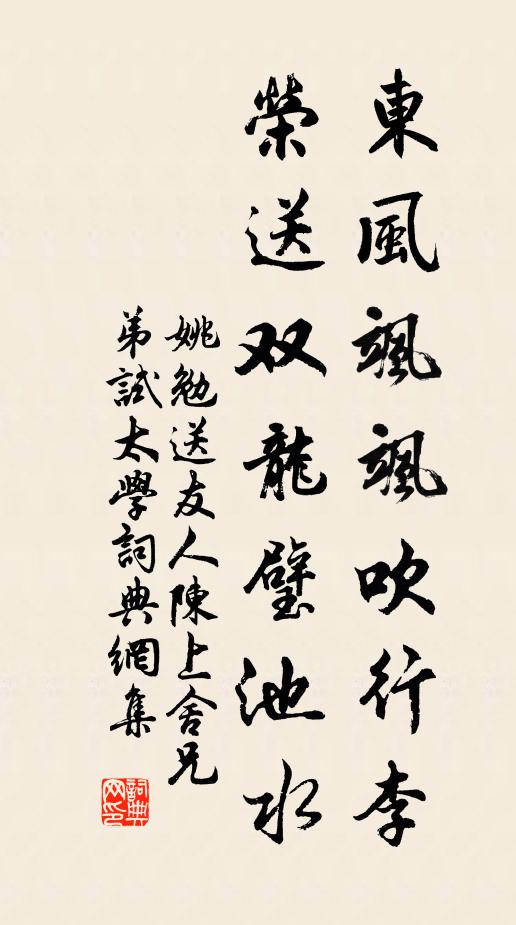 東風颯颯吹行李
榮送双龍璧池水
姚勉送友人陳上舍兄
弟試太學詞典網集
詞典
网印